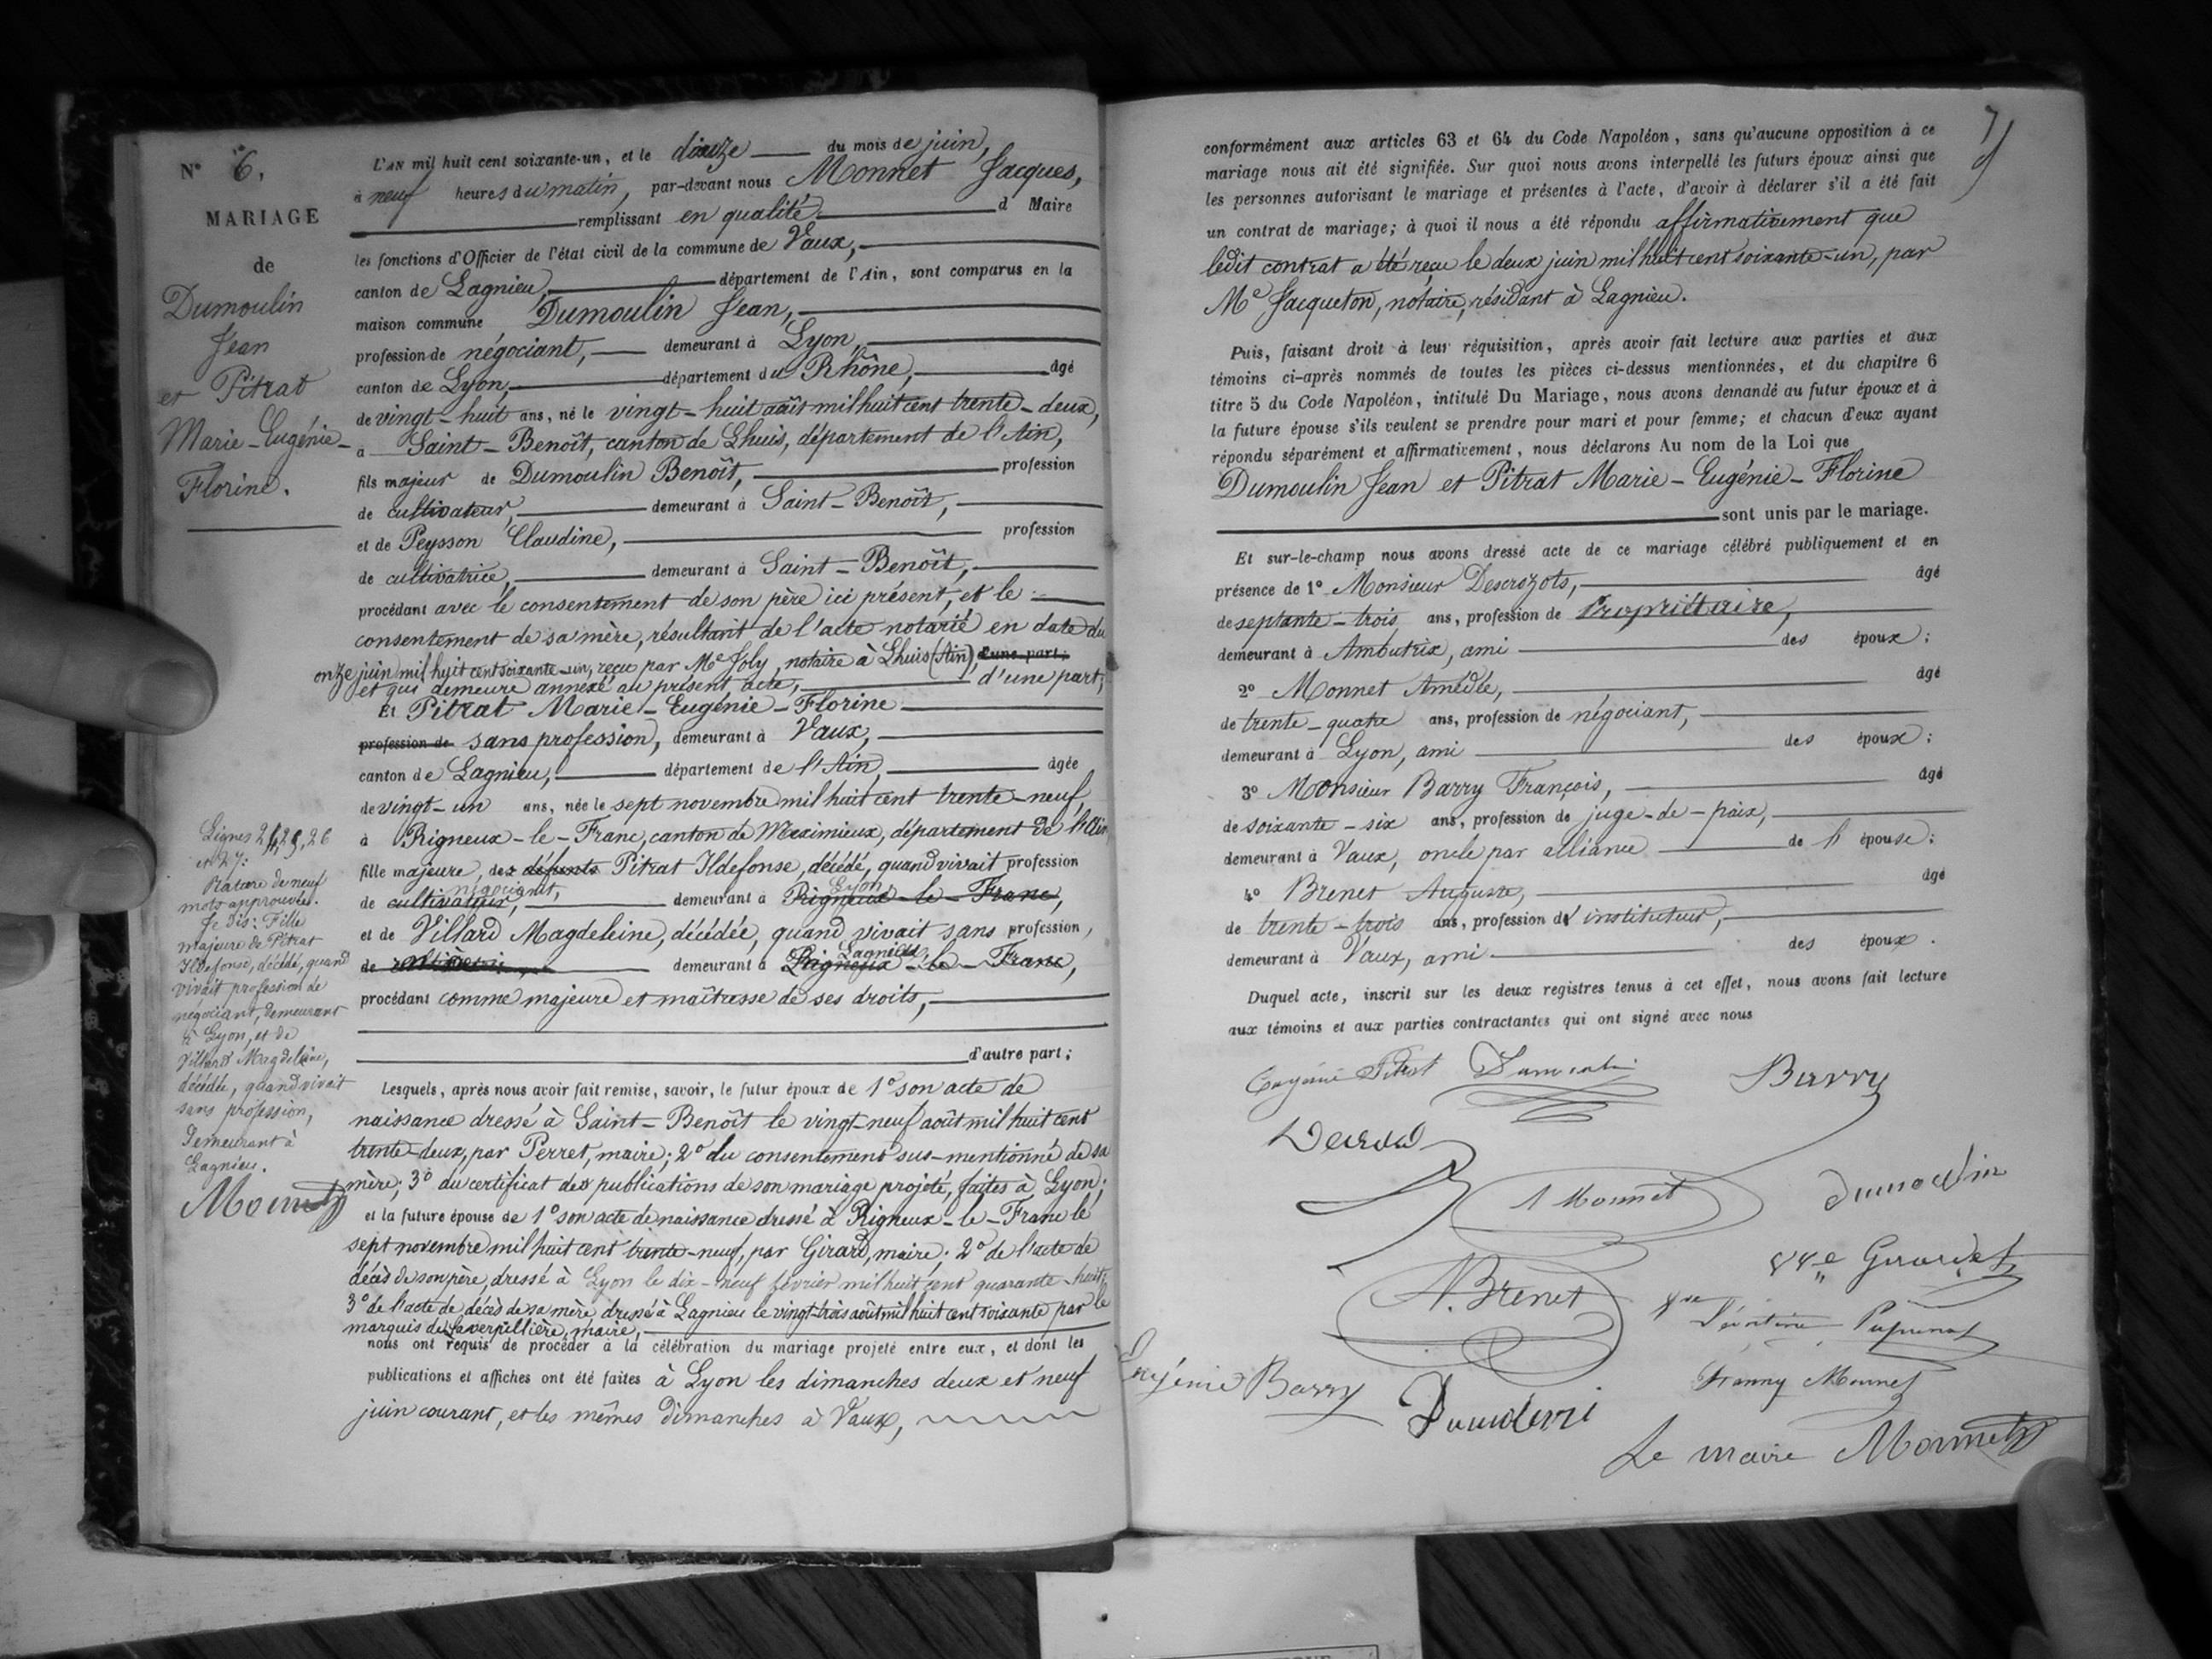 N° 6.
MARIAGE
de
Dumoulin
Jean
et Pitrat
Marie-Eugénie-
Florine.
L'AN mil huit cent soixante-un, et le douze du mois de juin,
à neuf heures du matin, par-devant nous Monnet Jacques,
remplissant en qualité d Maire
les fonctions d'Officier de l'état civil de la commune de Vaux,
canton de Lagnieu, département de l'Ain, sont comparus en la
maison commune Dumoulin Jean,
profession de négociant, demeurant à Lyon,
canton de Lyon, département du Rhône, âgé
de vingt-huit ans, né le vingt-huit août mil huit cent trente-deux,
a Saint-Benoît, canton de Lhuis, département de l'Ain,
fils majeur de Dumoulin Benoît, profession
de cultivateur, demeurant à Saint-Benoît,
et de Peysson Claudine, profession
de cultivatrice, demeurant à Saint-Benoît,
procédant avec le consentement de son père ici présent, et le
consentement de sa mère, résultant de l'acte notarié en date du
onze juin mil huit cent soixante-un, reçu par Me Joly, notaire à Lhuis (Ain), d'une part;
et qui demeure annexé au présent acte, d'une part,
Et Pitrat Marie-Eugénie-Florine
profession de sans profession, demeurant à Vaux,
canton de Lagnieu, département de l'Ain, âgée
de vingt-un ans, née le sept novembre mil huit cent trente-neuf,
à Rigneux-le-Franc, canton de Meximieux, département de l'Ain,
fille majeure, des défunts Pitrat Ildefonse, décédé, quand vivait profession
négociant, Lyon,
de cultivateur, demeurant à Rigneux-le-Franc,
et de Villard Magdeleine, décédée, quand vivait sans profession,
Lagnieu,
de demeurant à Rigneux-le-Franc,
procédant comme majeure et maîtresse de ses droits,
d'autre part;
Lesquels, après nous avoir fait remise, savoir, le futur époux de 1° son acte de
naissance dressé à Saint-Benoît le vingt-neuf août mil huit cent
trente-deux, par Perret, maire; 2° du consentement sus-mentionné de sa
mère; 3° du certificat des publications de son mariage projeté, faites à Lyon;
et la future épouse de 1° son acte de naissance dressé à Rigneux-le-Franc le
sept novembre mil huit cent trente-neuf, par Girard, maire; 2° de l'acte de
décès de son père, dressé à Lyon le dix-neuf février mil huit cent quarante-huit;
3° de l'acte de décès de sa mère dressé à Lagnieu le vingt-trois août mil huit cent soixante par le
marquis de Laverpillière, maire,
nous ont requis de procéder à la célébration du mariage projeté entre eux, et dont les
publications et affiches ont été faites à Lyon les dimanches deux et neuf
juin courant, et les mêmes dimanches à Vaux,
Lignes 24, 25, 26
et 27:
Rature de neuf
mots approuvée.
Je dis: Fille
majeure de Pitrat
Ildefonse, décédé, quand
vivait profession de
négociant, demeurant
à Lyon, et de
Villard Magdeleine,
décédée, quand vivait
sans profession,
demeurant à
Lagnieu.
Monnet
7
conformément aux articles 63 et 64 du Code Napoléon, sans qu'aucune opposition à ce
mariage nous ait été signifiée. Sur quoi nous avons interpellé les futurs époux ainsi que
les personnes autorisant le mariage et présentes à l'acte, d'avoir à déclarer s'il a été fait
un contrat de mariage; à quoi il nous a été répondu affirmativement que
ledit contrat a été reçu le deux juin mil huit cent soixante-un, par
Me Jacqueton, notaire, résidant à Lagnieu.
Puis, faisant droit à leur réquisition, après avoir fait lecture aux parties et aux
témoins ci-après nommés de toutes les pièces ci-dessus mentionnées, et du chapitre 6
titre 5 du Code Napoléon, intitulé Du Mariage, nous avons demandé au futur époux et à
la future épouse s'ils veulent se prendre pour mari et pour femme; et chacun d'eux ayant
répondu séparément et affirmativement, nous déclarons Au nom de la Loi que
Dumoulin Jean et Pitrat Marie-Eugénie-Florine
sont unis par le mariage.
Et sur-le-champ nous avons dressé acte de ce mariage célébré publiquement et en
présence de 1° Monsieur Descrozots, âgé
de septante-trois ans, profession de Propriétaire,
demeurant à Ambutrix, ami des époux;
2° Monnet Amédée, âgé
de trente-quatre ans, profession de négociant,
demeurant à Lyon, ami des époux;
3° Monsieur Barry François, âgé
de soixante-six ans, profession de juge-de-paix,
demeurant à Vaux, oncle par alliance de l'épouse;
4° Brenet Auguste, âgé
de trente-trois ans, profession d'instituteur,
demeurant à Vaux, ami des époux.
Duquel acte, inscrit sur les deux registres tenus à cet effet, nous avons fait lecture
aux témoins et aux parties contractantes qui ont signé avec nous
Eugénie Pitrat Dumoulin Barry
A Monnet Dumoulin
A. Brenet
Eugénie Barry Fanny Monnet
Le maire Monnet